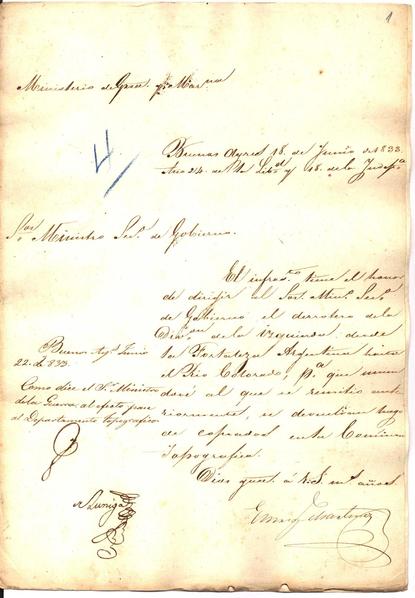 1
Ministerio de Guerr. y Marna
4
Buenos Ayres 18. de Junio de 1833.
Año 24. de la Libd y 18. de la Indepa
Sor Ministro Seco. de Gobierno.
El infrto. tiene el honor
de dirigir al Sor. Mino. Seco.
de Gobierno el derrotero de la
Divon. de la izquierda, desde
la Fortaleza Argentina hasta
el Rio Colorado, pa. que
al que se remitio ante
riormente, se devuelvan luego
de copiados, en la Comision
Topografica.
Dios gue. á V.S. ms. años
Buenos Ays. Junio
22. de 833.
Como dice el Sr. Ministro
de la Guerra: al efecto pase
al Departamento topografico
de Zuñiga
Enriq. Martinez